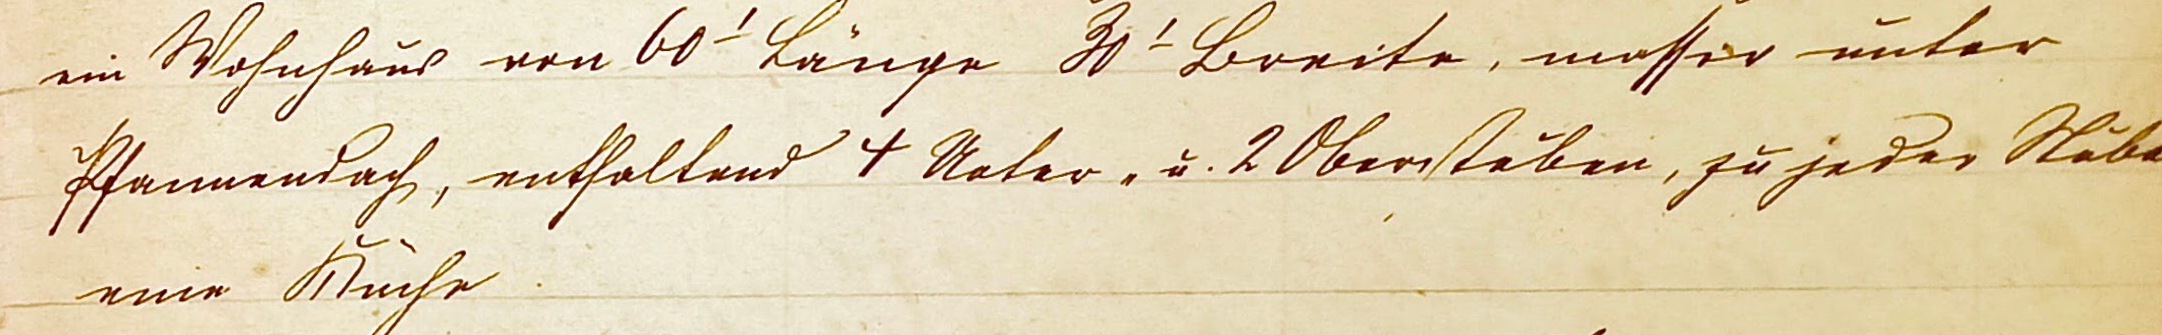 ein Wohnhaus von 60' Länge 30' Breite, massiv unter
Pfannendach, enthaltend 4 Unter- u. 2 Oberstuben, zu jeder Stube
eine Küche